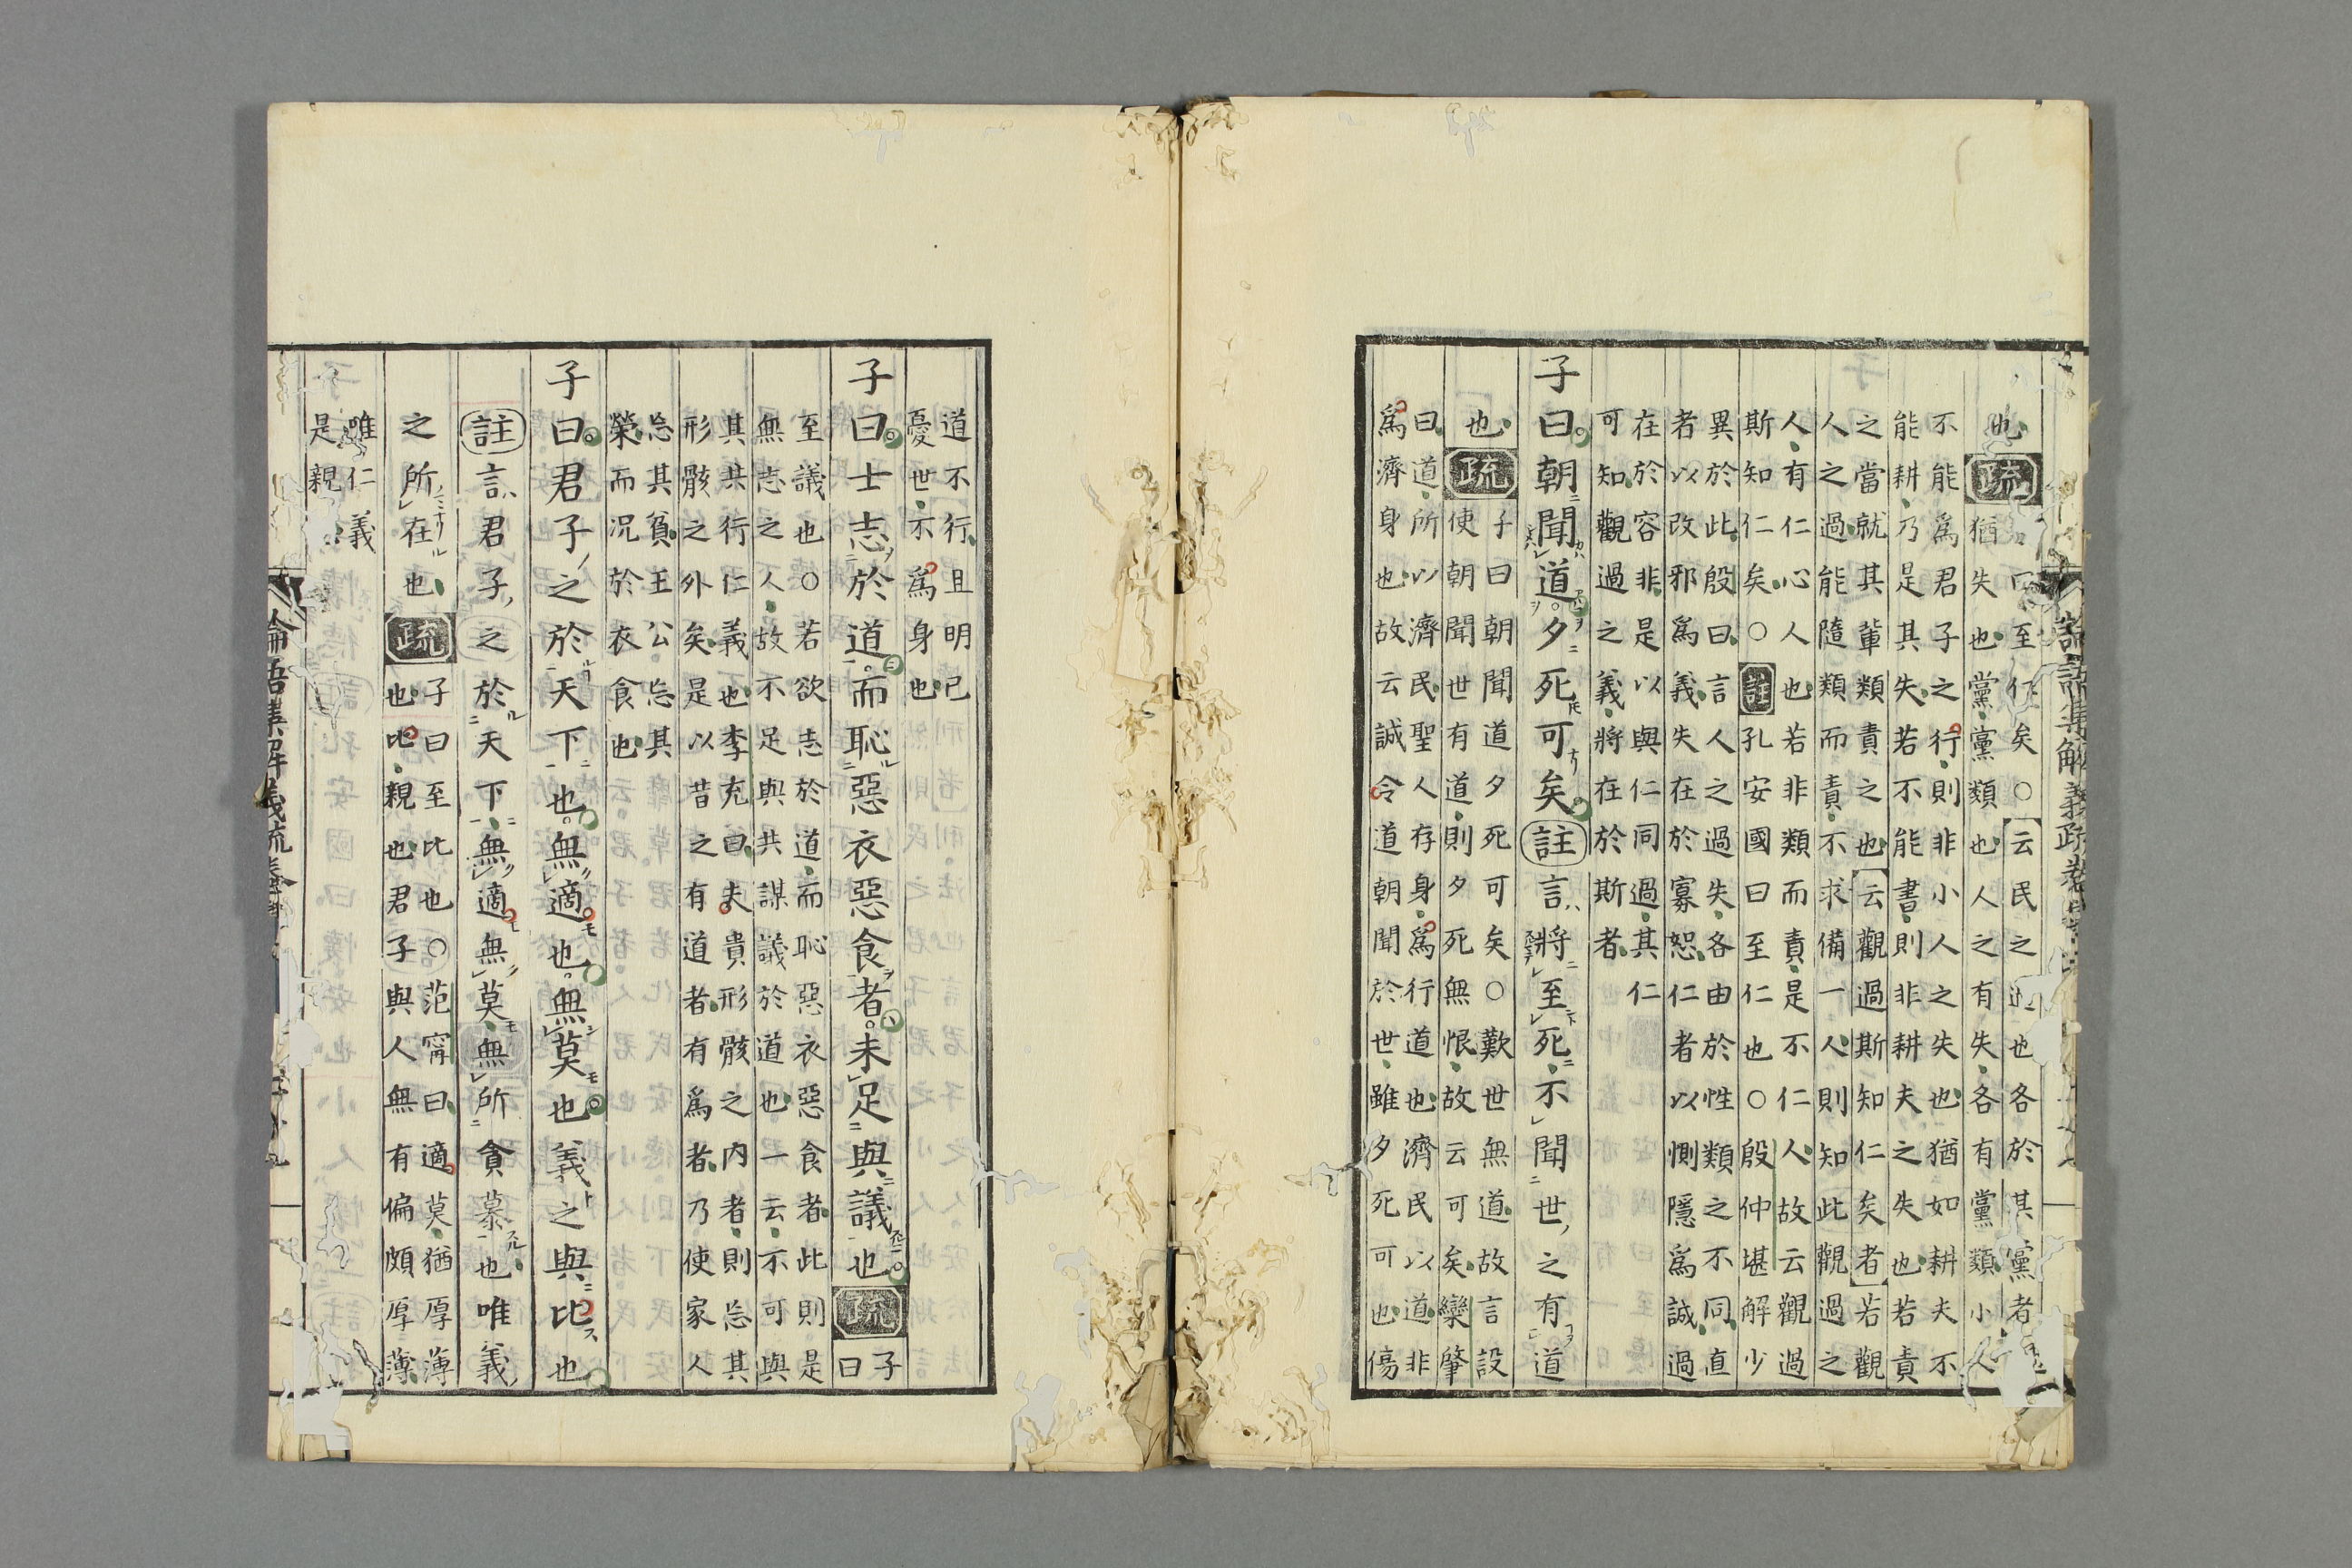 論語集解義疏卷
也疏
至仁矣○云民之過也各於其黨者
猶失也黨黨類也人之有失各有黨類小人
不能爲君子之行則非小人之失也猶如耕夫不
能耕乃是其失若不能書則非耕夫之失也若責
之當就其輩類責之也云觀過斯知仁矣者若觀
人之過能隨類而責不求備一人則知此觀過之
人有仁心人也若非類而責是不仁人故云觀過
斯知仁矣○註孔安國曰至仁也○殷仲堪解少
異於此殷曰言人之過失各由於性類之不同直
者以改邪爲義失在於寡恕仁者以惻隱爲誠過
在於容非是以與仁同過其仁
可知觀過之義將在於斯者
子曰朝聞道夕死可矣註言將至死不聞世之有道
也疏
子曰朝聞道夕死可矣○歎世無道故言設
使朝聞世有道則夕死無恨故云可矣欒肇
曰道所以濟民聖人存身爲行道也濟民以道非
爲濟身也故云誠令道朝聞於世雖夕死可也傷
道不行且明己
憂世不爲身也
子曰士志於道而恥惡衣惡食者未足與議也疏子曰
至議也○若欲志於道而恥惡衣惡食者此則是
無志之人故不足與共謀議於道也一云不可與
其共行仁義也李充曰夫貴形骸之内者則忘其
形骸之外矣是以昔之有道者有爲者乃使家人
忘其貧王公忘其
榮而況於衣食也
子曰君子之於天下也無適也無莫也義之與比也
註言君子之於天下無適無莫無所貪慕也唯義
之所在也疏
子曰至比也○范甯曰適莫猶厚薄
也比親也君子與人無有偏頗厚薄
唯仁義
是親
論語集解義疏卷